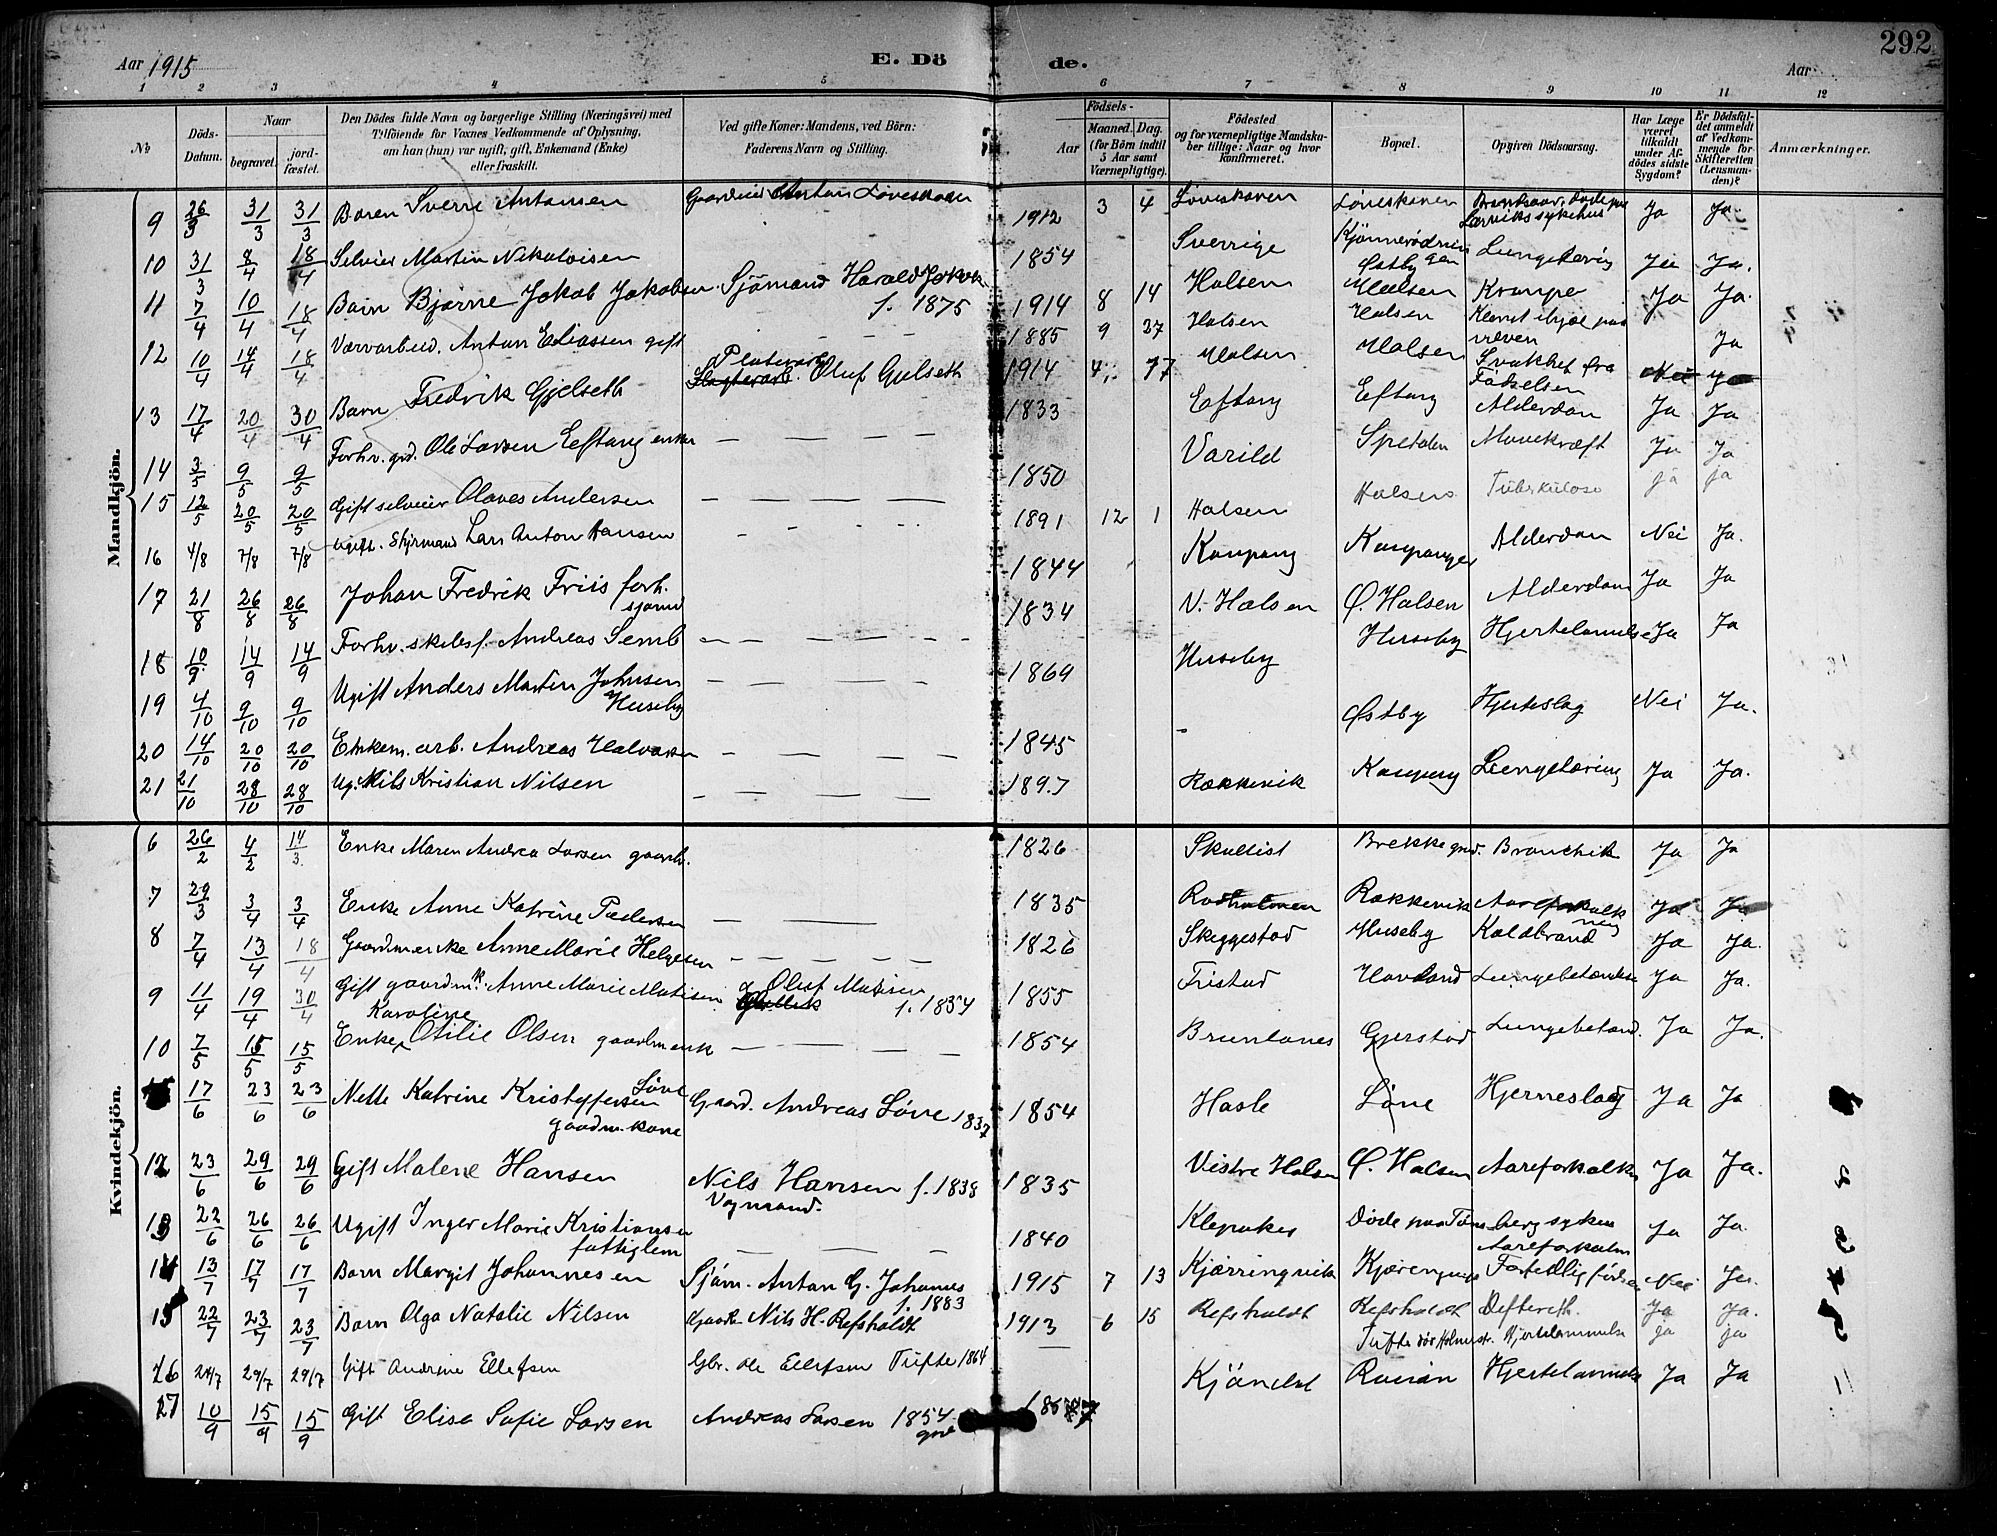 Aar 1915
E. Dö
de.
Aar
292
1 2 3 4 5 6 7 8 9 10 11 12
No
Döds-Datum.
Naar
begravet.
jord-fæstet.
Den Dödes fulde Navn og borgerlige Stilling (Næringsvei) med
Tilföiende for Voxnes Vedkommende af Oplysning,
om han (hun) var ugift, gift, Enkemand (Enke)
eller fraskilt.
Ved gifte Koner: Mandens, ved Börn:
Faderens Navn og Stilling.
Födsels-
Aar
Maaned. Dag.
(for Börn indtil
5 Aar samt
Værnepligtige).
Födested
og for værnepligtige Mandska-
ber tillige: Naar og hvor
konfirmeret.
Bopæl.
Opgiven Dödsaarsag.
Har Læge
været
tilkaldt
under Af-
dödes sidste
Sygdom?
Er Dödsfal-
det anmeldt
af Vedkom-
mende for
Skifteretten
(Lensman-
den)?
Anmærkninger.
Mandkjön.
9 26/3 31/3 31/3 Sverre Antonsen Anton Løveskoven 1912 3 4 Løveskoven Løveskoven Larviks sykehus Ja Ja
10 31/3 8/4 18/4 Selveier Martin Nikolaisen 1854 Sverrige Østby Ja Ja.
11 7/4 10/4 18/4 Barn Bjarne Jakob Jakobsen Sjömand Harald Jakob f. 1875 1914 8 14 Halsen Halsen Krampe Ja Ja
12 10/4 14/4 18/4 Anton Eliassen gift 1885 9 27 Halsen Halsen Ja
13 17/4 20/4 30/4 Barn Fredrik Gjelseth Oluf Gulseth 1914 4 Halsen Halsen Svakhet fra Fødselen Nei Ja
14 3/5 9/5 9/5 Forhv. grd. Ole Larsen Eftang enkem 1833 Eftang Eftang Alderdom Ja Ja
15 12/5 20/5 20/5 Gift selveier Olaves Andersen 1850 Varild Spetalen Mavekræft Ja Ja
16 4/8 7/8 7/8 Ugift. Styrmand Lars Anton Hansen 1891 12 1 Halsen Halsen Tuberkulose ja ja
17 21/8 26/8 26/8 Johan Fredrik Friis forh. sjømd 1844 Kaupang Kaupang Alderdom Nei Ja.
18 10/9 14/9 14/9 Forhv. skibsf. Andreas Semb 1834 V. Halsen Ø. Halsen Alderdom Ja Ja
19 4/10 9/10 9/10 Ugift Anders Martin Johnsen Huseby 1869 Huseby Huseby Hjertelammelse Ja Ja
20 14/10 20/10 20/10 Enkem. arb. Andreas Halvorsen 1845 - Østby Hjerteslag Nei Ja.
21 21/10 28/10 28/10 Ug. Nils Kristian Nilsen 1897 Rækkevik Kaupang Lungetæring Ja Ja.
Kvindekjön.
6 26/2 4/2 14/3 Enke Maren Andrea Larsen 1826 Brekke grd. Bronchit Ja Ja
7 29/3 3/4 3/4 Enke Anne Katrine Pedersen 1835 Rakkevik Aareforkalkning Ja Ja
8 7/4 13/4 18/4 Gaardm.enke Anne Marie Helgesen 1826 Skeggestad Huseby Koldbrand Ja Ja.
9 11/4 19/4 30/4 Gift gaardmk. Anne Marie Matisen Oluf Matisen f. 1854 1855 Fristad Havland Lungebetændelse Ja Ja.
10 7/5 15/5 15/5 Enke Karoline Otilie Olsen gaardmenk 1854 Brunlanes Gjerstad Lungebetænd. Ja Ja.
17/6 23/6 23/6 Nelle Katrine Kristoffersen Løve gaardm.kone Gaard. Andreas Løve 1837 1854 Hasle Løve Hjerneslag Ja Ja
12 23/6 29/6 29/6 Gift Malene Hansen Nils Hansen f. 1838 Vognmand. 1835 Vestre Halsen Ø. Halsen Aareforkalkn Ja Ja.
13 22/6 26/6 26/6 Ugift Inger Marie Kristiansen fattiglem 1840 Klepaker Døde paa Tønsberg sykeh Aareforkalkn Ja Ja.
14 13/7 17/7 17/7 Barn Margit Johannesen Sjöm. Anton G. Johannes f. 1883 1915 7 13 Kjærringvik Nei Ja.
15 22/7 23/7 23/7 Barn Olga Natalie Nilsen Nils H. Refsholdt 1913 6 15 Refsholdt Refsholdt Difterith. Ja Ja.
16 24/7 29/7 29/7 Gift Andrine Ellefsen Gbr. Ole Ellefsen Tufte 1864 Tufte Hjertelammelse ja ja
17 10/9 15/9 15/9 Gift Elise Sofie Larsen Andreas Larsen 1854 Hjertelammelse Ja Ja